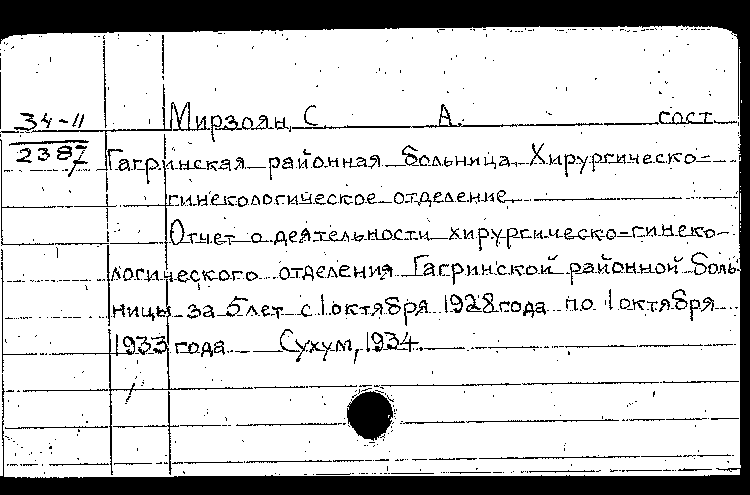 34-11
2387
Мирзоян, С А. сост.
Гагринская районная больница. Хирургическо-
гинекологическое отделение.
Отчет о деятельности хирургическо-гинеко-
логического отделения Гагринской районной боль-
ницы за 5 лет с 1 октября 1928 года по 1 октября
1933 года Сухум, 1934.